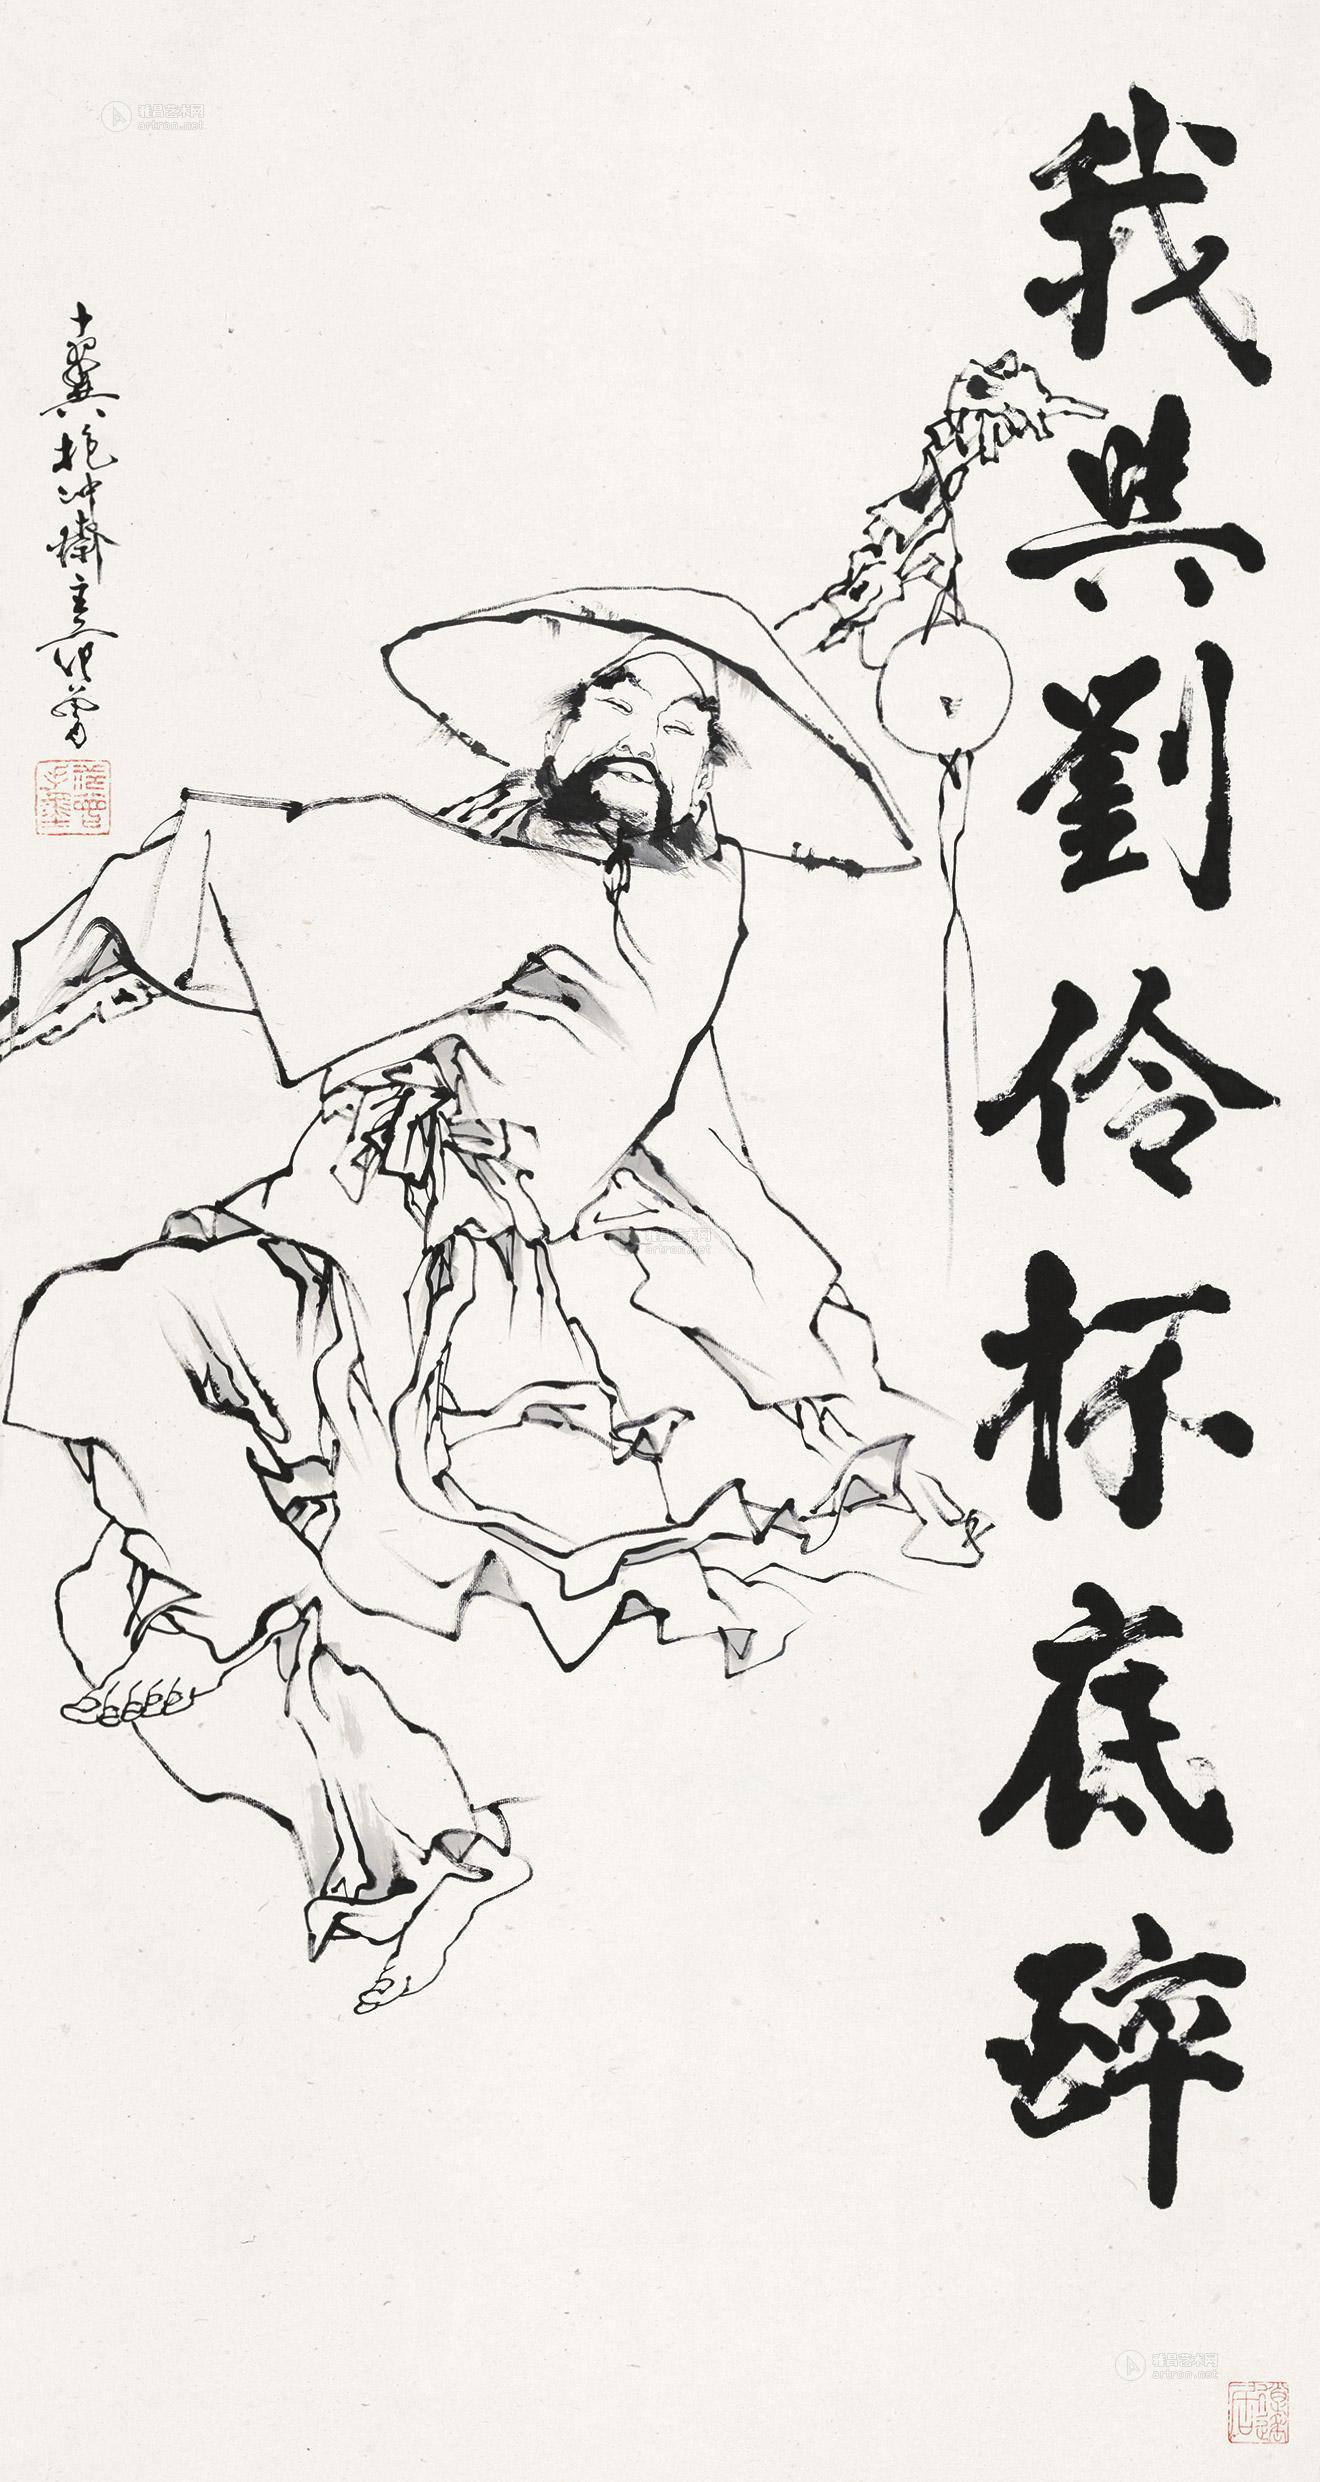 我與劉伶杯底醉
十翼抱冲齋主范曾
雅昌艺术网
artron.net
雅昌艺术网
artron.net
雅昌艺术网
artron.net